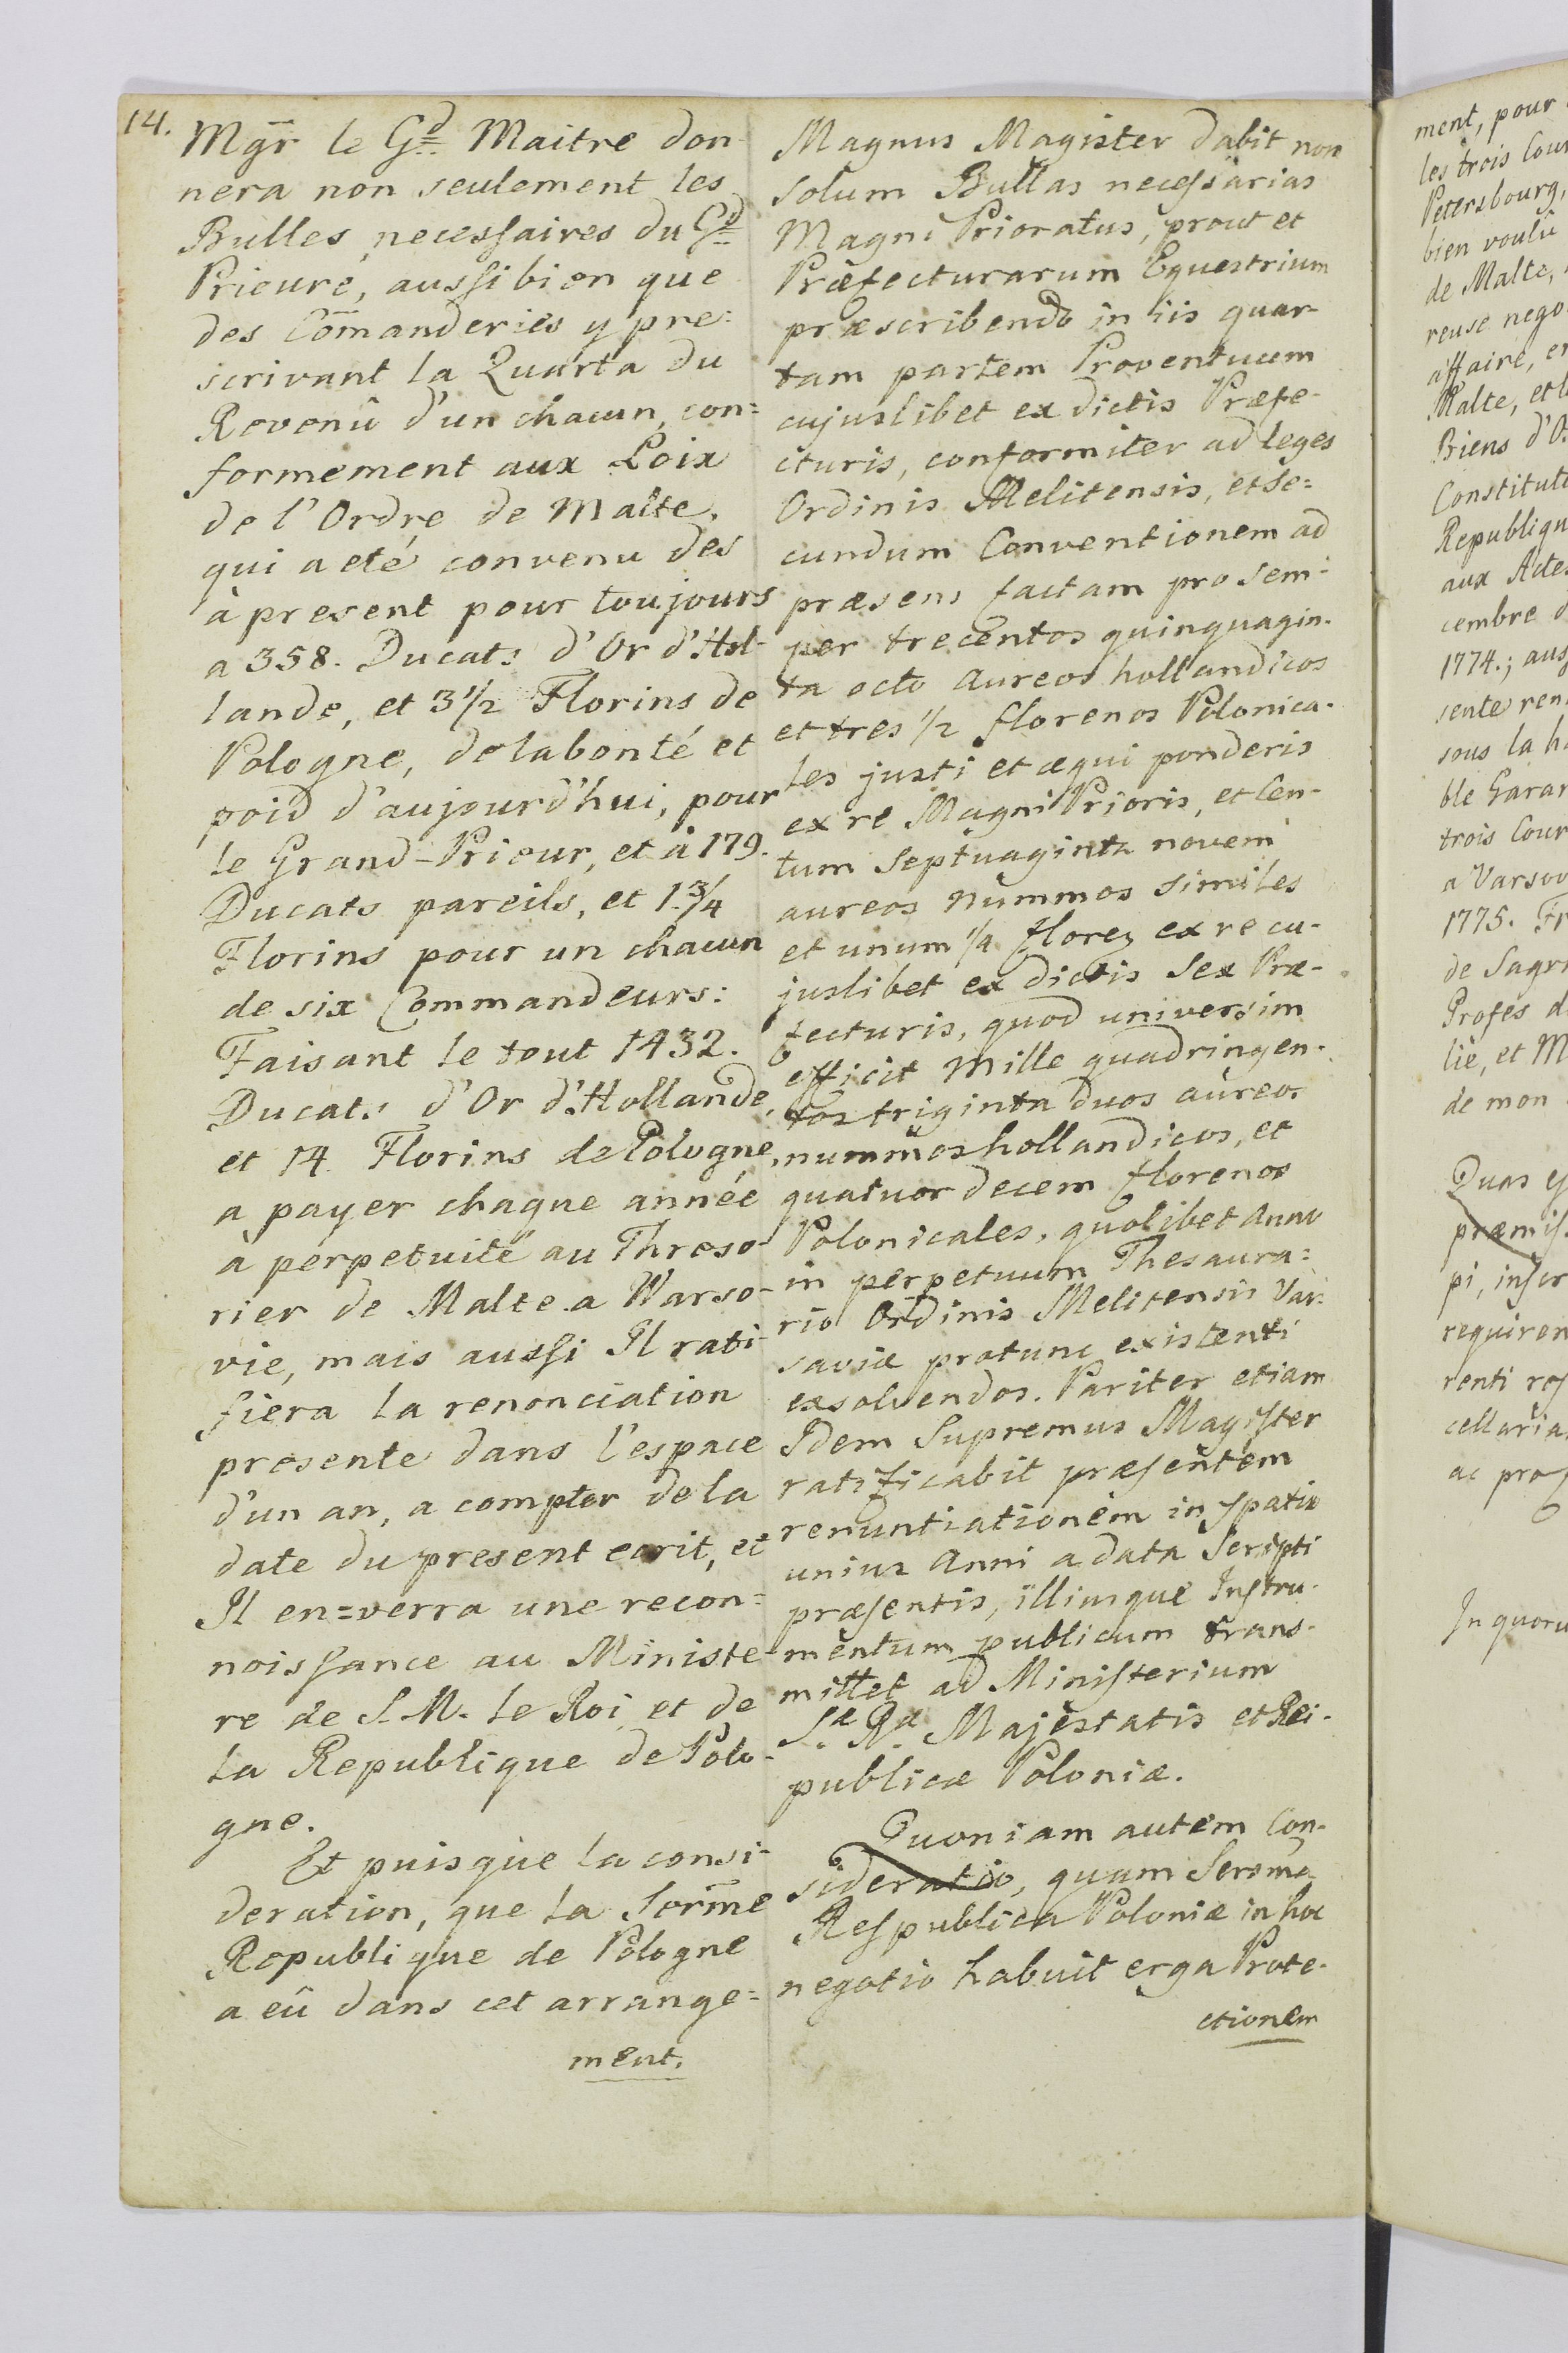 14.
Mgr̄ le Gd Maitre don-
nera non seulement les
Bulles necessaires du Gd
Prieuré, aussi bien que
des Com̄anderies y pre:
scrivant la Quarta du
Revenû d'un chacun, con=
formement aux Loix
de l'Ordre de Malte.
qui a eté convenu des
à present pour toujours
a 358. Ducats d'Or d'Hol-
lande, et 3 1/2 Florins de
Pologne, de la bonté et
poid d'aujourd'hui, pour
le Grand-Prieur, et à 179.
Ducats pareils, et 1 3/4
Florins pour un chacun
de six Commandeurs:
Faisant le tout 1432.
Ducats d'Or d'Hollande,
et 14. Florins de Pologne,
a payer chaque année
à perpetuité au Threso-
rier de Malte a Warso-
vie, mais aussi Il rati-
fiera la renonciation
presente dans l'espace
d'un an, a compter de la
date du present ecrit, et
Il en=verra une recon=
noissance au Ministe-
re de S. M. le Roi et de
la Republique de Polo-
gne.
Et puisque la consi-
deration, que la Serm̄e
Republique de Pologne
a eû dans cet arrange=
ment.
Magnus Magister dabit non
solum Bullas necessarias
Magni Prioratus, prout et
Præfecturarum Equestrium
præscribendo in iis quar-
tam partem Proventuum
cujuslibet ex dictis Præfe-
cturis, conformiter ad leges
Ordinis Melitensis, et se=
cundum Conventionem ad
præsens factam pro sem-
per trecentos quinquagin-
ta octo aureos hollandicos
et tres 1/2 florenos Polonica-
les justi et æqui ponderis
ex re Magni Prioris, et Cen-
tum Septuaginta novem
aureos nummos similes
et unum 1/4 floren ex re cu-
juslibet ex dictis Sex Præ-
fecturis, quod universim
efficit Mille quadringen-
tos triginta duos aureos
nummos hollandicos, et
quatuor decem florenos
Polonicales, quolibet Anno
in perpetuum Thesaura=
rio Ordinis Melitensis Var-
saviæ protunc existenti
exsolvendos. Pariter etiam
Idem Supremus Magister
ratificabit præsentem
renuntiationem in spatio
unius Anni a data Scripti
præsentis, illiusque Instru-
mentum publicum trans-
mittet ad Ministerium
Sæ Ræ Majestatis et Rei-
publicæ Poloniæ.
Quoniam autem Con-
sideratio, quam Serenma
Respublica Poloniæ in hoc
negotio habuit erga Prote-
ctionem
ment, pour
les trois Cour
Petersbourg,
bien voulû
de Malte,
reuse nego
affaire, en
Malte, et l
Biens d'O
Constitut
Republiqu
aux Actes
cembre d
1774.; aus
sente ren
sous la h
ble Garan
trois Cour
a Varsov
1775. Fr
de Sagr
Profés d
lie, et M
de mon
Quas
præmis
pi, inser
requiren
renti
cellaria
ac pro
In quoru